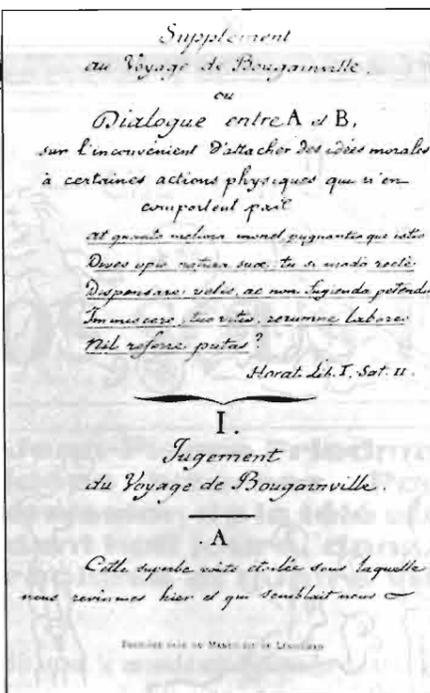 Supplément
au Voyage de Bougainville.
ou
Dialogue entre A et B,
sur l'inconvénient d'attacher des idées morales
à certaines actions physiques qui n'en
comportent pas
at quanto meliora monet pugnantiaque istis
Dives opis natura suæ, tu si modo recte
Dispensare velis, ac non fugienda petendis
Immiscere, tuo vitio, rerumne labores
Nil referre putas?
Horat. Lib. I, Sat. II.
I.
Jugement
du Voyage de Bougainville.
A
Cette superbe voûte étoilée sous laquelle
nous revinmes hier et qui semblait nous
PREMIÈRE PAGE DU MANUSCRIT DE LENINGRAD